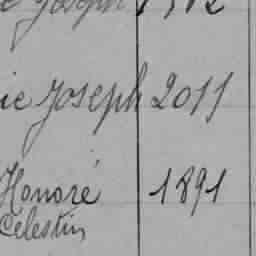 Joseph
ie Joseph 2011
Honoré 1891
Celestin